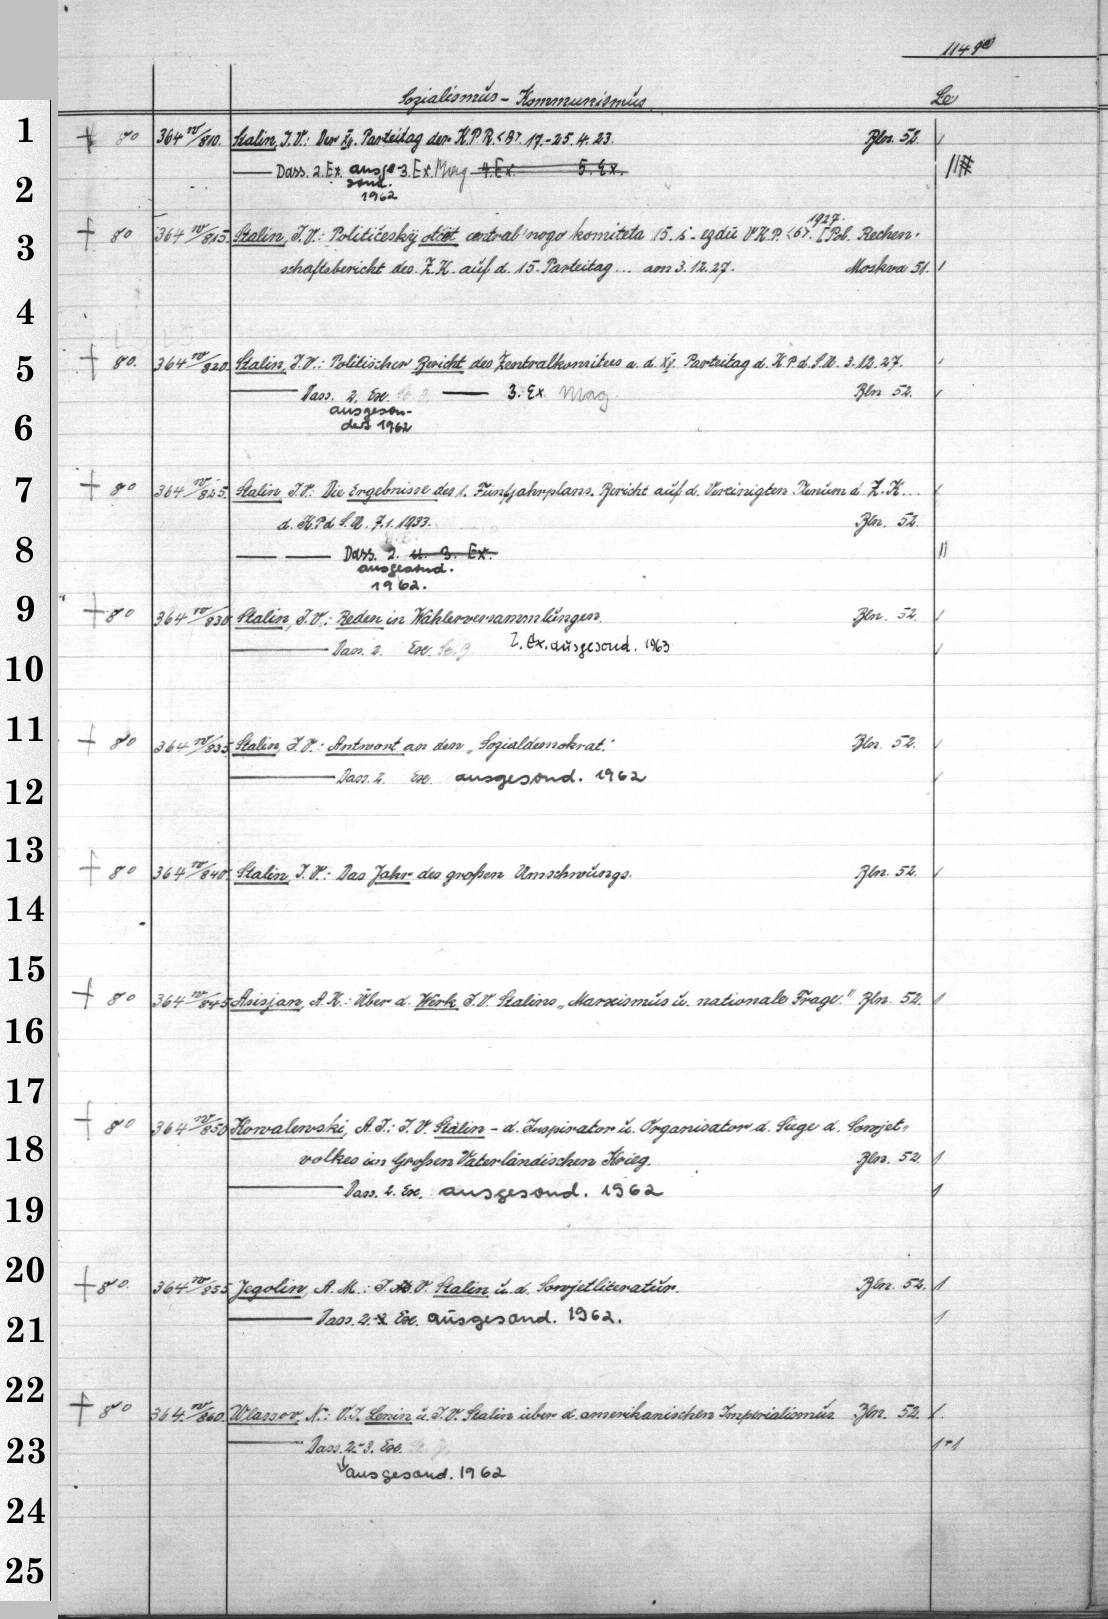 114
Sozialismus – Kommunismus Le
1
+ 8° 364 IV/810. Stalin, J.W.: Der XII. Parteitag der K.P.R.<B>. 17.-25.4.23. Bln. 52.
2
Dass. 2. Ex. ausge- 3. Ex. Mag 4. Ex. 5. Ex.
sond.
1962
1927.
3
+ 8° 364 IV/815. Stalin, J.W.: Političeskij otčët central'nogo komiteta 15. s-ezdu VKP.<b>. [Pol. Rechen-
schaftsbericht des Z.K. auf d. 15. Parteitag... am 3.12.27. Moskva 51.
4
5
+ 8°. 364 IV/820. Stalin, J.W.: Politischer Bericht des Zentralkomitees a. d. XV. Parteitag d. KP d. S.U. 3.12.27.
Dass. 2. Ex. 3. Ex. Mag. Bln 52.
ausgeson-
6
dert 1962
7
+ 8° 364 IV/825. Stalin, J.W.: Die Ergebnisse des 1. Fünfjahrplans. Bericht auf d. Vereinigten Plenum d. Z.K...
d. KPd S.U. 7.1.1933. Bln. 52.
8
Dass. 2. u. 3. Ex.
ausgesond.
1962.
9
+ 8° 364 IV/830 Stalin, J.W.: Reden in Wählerversammlungen. Bln. 52.
10
Dass. 2. Ex. 2. Ex. ausgesond. 1963
11
+ 8° 364 IV/835 Stalin, J.W.: Antwort an den „Sozialdemokrat." Bln. 52.
12
Dass. 2. Ex. ausgesond. 1962
13
+ 8° 364 IV/840. Stalin, J.W.: Das Jahr des großen Umschwungs. Bln. 52.
14
15
+ 8° 364 IV/845 Asisjan, A.K.: Über d. Werk J.W. Stalins „Marxismus u. nationale Frage." Bln. 52.
16
17
+ 8° 364 IV/850 Kowalewski, A.J.: J.W. Stalin – d. Inspirator u. Organisator d. Siege d. Sowjet-
18
volkes im Großen Vaterländischen Krieg. Bln. 52.
19
Dass. 2. Ex. ausgesond. 1962
20
+ 8°. 364 IV/855 Jegolin, A.M.: J.W. Stalin u. d. Sowjetliteratur. Bln. 52.
21
Dass. 2. Ex. ausgesond. 1962.
22
+ 8° 364. IV/860. Wlassow, N.: W.J. Lenin u. J.W. Stalin über d. amerikanischen Imperialismus. Bln. 52.
23
Dass. 2.-3. Ex. 1+1
ausgesond. 1962
24
25